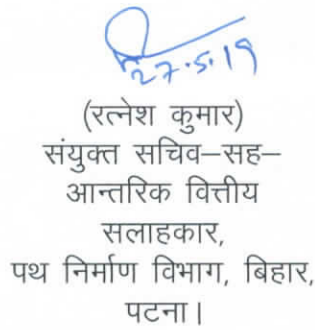 27.5.19
(रत्नेश कुमार)
संयुक्त सचिव–सह–
आन्तरिक वित्तीय
सलाहकार,
पथ निर्माण विभाग, बिहार,
पटना।